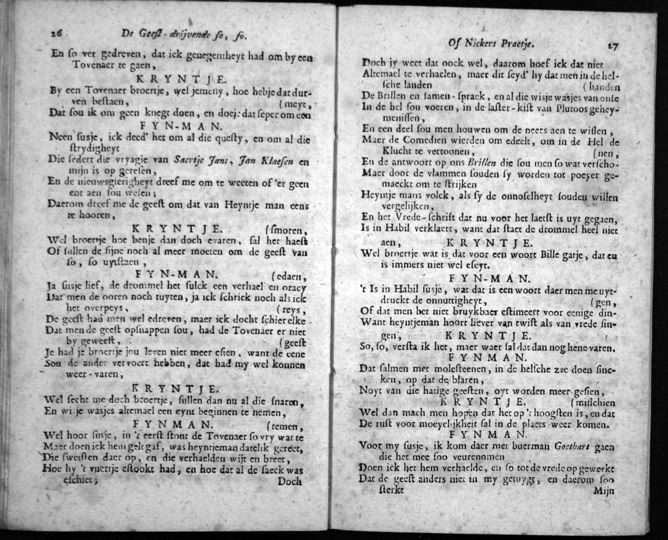 26 De Geest-drijvende so, so.
En so ver gedreven, dat ick genegentheyt had om by een
Tovenaer te gaen,
KRYNTJE.
By een Tovenaer broertje, wel jemeny, hoe hebje dat dur-
ven bestaen, (meyt,
Dat sou ik om geen knegt doen, en doeje dat seper om een
FYN-MAN.
Neen susje, ick deed' het om al die questy, en om al die
strydigheyt
Die sedert die vryagie van Saertje Jans, Jan Klaesen en
mijn is op geresen,
En de nieuwsgierigheyt dreef me om te weeten of 'er geen
ent aen sou wesen;
Daerom dreef me de geest om dat van Heyntje man eens
te hooren,
KRYNTJE. (smoren,
Wel broertje hoe benje dan doch evaren, sal het haest
Of sullen de sijne noch al meer moeten om de geest van
so, so uytstaen,
FYN-MAN. (edaen,
Ja susje lief, de drommel het sulck een verhael en oracy
Dat men de ooren noch tuyten, ja ick schrick noch als ick
het overpeys, (reys,
De geest had men wel edreven, maer ick docht schier elke
Dat men de geest opsnappen sou, had de Tovenaer er niet
by geweest, (geest
Je had je broertje jou leven niet meer esien, want de eene
Sou de ander vervoert hebben, dat had my wel konnen
weer-varen,
KRYNTJE.
Wel secht me doch broertje, sullen dan nu al die snaren,
En wi je wasjes altemael een eynt beginnen te nemen,
FYNMAN. (temen,
Wel hoor susje, in 't eerst stont de Tovenaer so vry wat te
Maer doen ick hem gelt gaf, was heyntjeman datelik gereet,
Die sweesten daer op, en die verhaelden wijt en breet,
Hoe hy 't vuertje estookt had, en hoe dat al de saeck was
eschiet; Doch
Of Nickers Praetje. 27
Doch jy weet dat oock wel, daarom hoef ick dat niet
Altemael te verhaelen, maer dit seyd' hy dat men in de hel-
sche landen (handen
De Brillen en samen-spraek, en al die wisje wasjes van onse
In de hel sou voeren, in de laster-kist van Plutoos gehey-
menissen,
En een deel sou men houwen om de neers aen te wissen,
Maer de Comedien wierden om edeelt, om in de Hel de
Klucht te vertoonen, (nen,
En de antwoort op ons Brillen die sou men so wat verscho-
Maer door de vlammen souden sy worden tot poeyer ge-
maeckt om te strijken
Heyntje mans volck, als sy de onnoselheyt souden willen
vergelijken,
En het Vrede-schrift dat nu voor het laetst is uyt gegaen,
Is in Habil verklaert, want dat staet de drommel heel niet
aen, KRYNTJE.
Wel broertje wat is dat voor een woort Bille gatje, dat en
is immers niet wel eseyt.
FYN-MAN.
't Is in Habil susje, wat dat is een woort daer men me uyt-
druckt de onnuttigheyt, (gen,
Of dat men het niet bruykbaer estimeert voor eenige din-
Want heyntjeman hoort liever van twist als van vrede sin-
gen, KRYNTJE.
So, so, versta ik het, maer waer sal dat dan nog hene varen.
FYNMAN.
Dat salmen met molesteenen, in de helsche zee doen sinc-
ken, op dat de blaren,
Noyt van die hatige geesten, oyt worden meer gesien,
KRYNTJE. (mischien
Wel dan mach men hopen dat het op 't hoogsten is, en dat
De rust voor moeyelijkheyt sal in de plaets weer komen.
FYNMAN.
Voor my susje, ik kom daer met buerman Goethart gaen
die het mee soo veurenomen
Doen ick het hem verhaelde, en so tot de vrede op gewerkt
Dat de geest anders niet in my getuygt, en daerom soo
sterkt Mijn